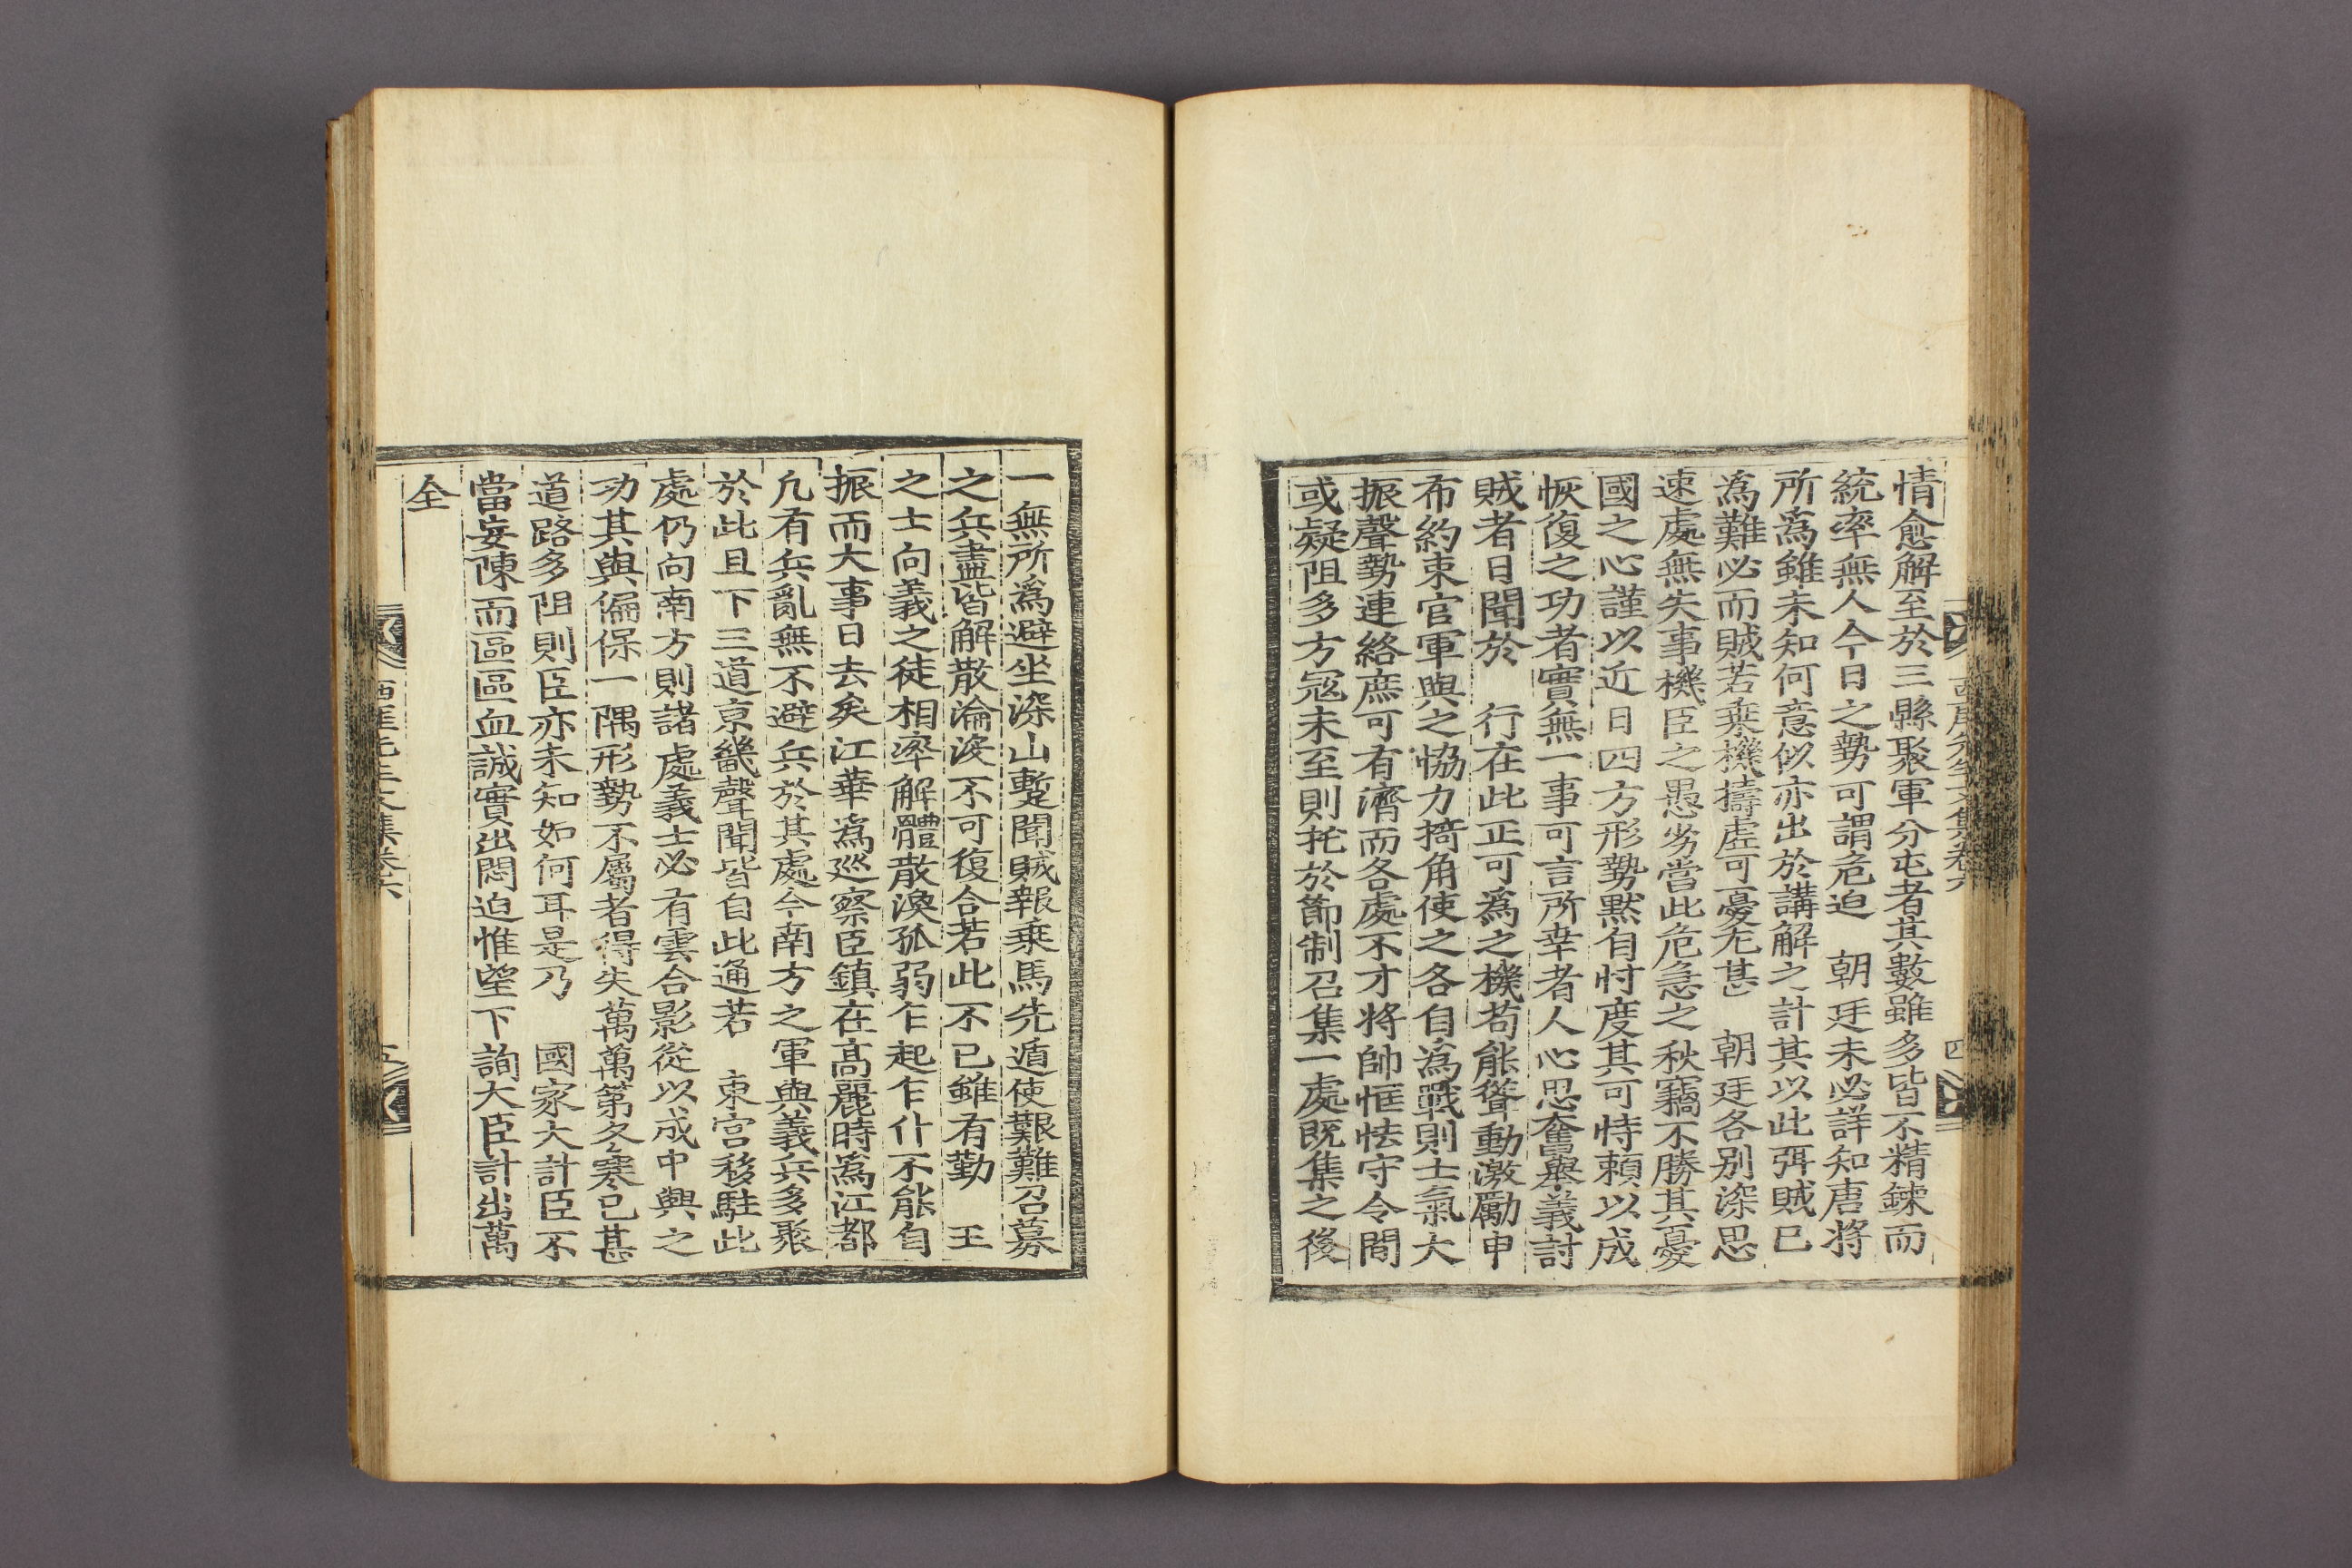 情愈解至於三縣聚軍分屯者其數雖多皆不精鍊而
統率無人今日之勢可謂危迫　朝廷未必詳知唐將
所爲雖未知何意似亦出於講解之計其以此弭賊已
爲難必而賊若乘機擣虛可憂尤甚　朝廷各別深思
速處無失事機臣之愚劣當此危急之秋竊不勝其憂
國之心謹以近日四方形勢默自忖度其可恃賴以成
恢復之功者實無一事可言所幸者人心思奮擧義討
賊者日聞於　行在此正可爲之機苟能聳動激勵申
布約束官軍與之恊力掎角使之各自爲戰則士氣大
振聲勢連絡庶可有濟而各處不才將帥恇怯守令間
或疑阻多方寇未至則托於節制召集一處旣集之後
四
一無所爲避坐深山蹔聞賊報乘馬先遁使艱難召募
之兵盡皆解散淪沒不可復合若此不已雖有勤　王
之士向義之徒相率解體散渙孤弱乍起乍仆不能自
振而大事日去矣江華爲巡察臣鎭在高麗時爲江都
凡有兵亂無不避兵於其處今南方之軍與義兵多聚
於此且下三道京畿聲聞皆自此通若　東宮移駐此
處仍向南方則諸處義士必有雲合影從以成中興之
功其與偏保一隅形勢不屬者得失萬萬第冬寒已甚
道路多阻則臣亦未知如何耳是乃　國家大計臣不
當妄陳而區區血誠實出悶迫惟望下詢大臣計出萬
全
西厓先生文集卷六
五